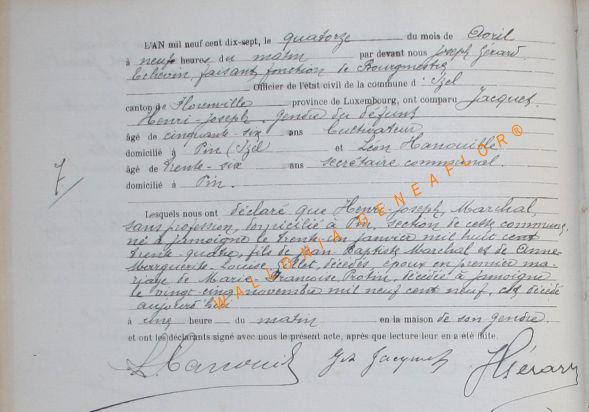 L'AN mil neuf cent dix-sept, le quatorze du mois de Avril
à neuf heures du matin par devant nous Joseph Gérard
Echevin faisant fonction de Bourgmestre
Officier de l'état civil de la commune d'Izel
canton de Florenville province de Luxembourg, ont comparu Jacquet
Henri-Joseph gendre du défunt
âgé de cinquante-six ans Cultivateur
domicilié à Pin (Izel) et Léon Hanouille
âgé de trente-six ans secrétaire communal
domicilié à Pin.
7
Lesquels nous ont déclaré que Henri-Joseph Marchal
sans profession, domicilié à Pin, section de cette commune,
né à Jamoigne le trente en janvier mil huit cent
trente-quatre, fils de Jean Baptiste Marchal et de Anne
Marguerite-Louise décédés, époux en premier ma-
riage de Marie Françoise décédée à Jamoigne
le vingt cinq novembre mil neuf cent neuf, est décédé
aujourd'hui
à cinq heure du matin en la maison de son gendre.
et ont les déclarants signé avec nous le présent acte, après que lecture leur en a été faite.
L. Hanouille Jacquet J Gérard
WALLONIA GENEAFLOR®